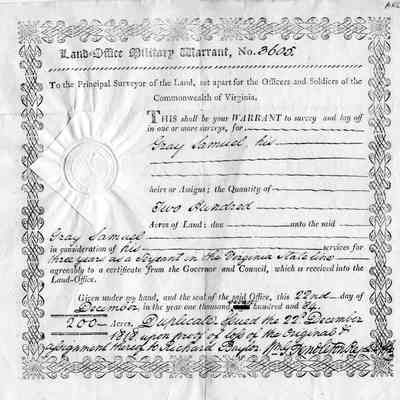 Land-Office Military Warrant, No. 3605
To the Principal Surveyor of the Land, set apart for the Officers and Soldiers of the
Commonwealth of Virginia.
THIS shall be your WARRANT to survey and lay off
in one or more surveys, for
Gray Samuel, his
heirs or Assigns; the Quantity of
Two Hundred
Acres of Land; due unto the said
Gray Samuel
in consideration of his services for
three years as a Serjeant in the Virginia State line
agreeably to a certificate from the Governor and Council, which is received into the
Land-Office.
Given under my hand, and the seal of the said Office, this 22nd day of
December in the year one thousand hundred and
200 Acres. Duplicate issued the 22d December
1818 upon proof of loss of the Original &
assignment thereof to Richard Taylor